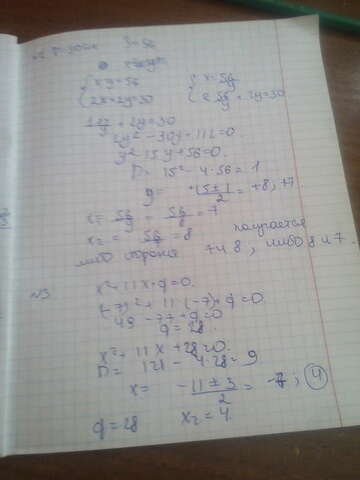 P=30см S=56
{ xy=56 { x=56/y
{ 2x+2y=30 { 2·56/y+2y=30
112/y+2y=30
2y²-30y+112=0
y²-15y+56=0.
D=15²-4·56=1
y= +15±1/2=+8;+7.
x=56/y=56/8=7
x₂=56/y=8 получается
либо сторона 7 и 8, либо 8 и 7.
№3
x²+11x+q=0.
(-7)²+11(-7)+q=0
49-77+q=0
q=28.
x²+11x+28=0.
D=121-4·28=9
x= -11±3/2= -7; 4
q=28 x₂=4.